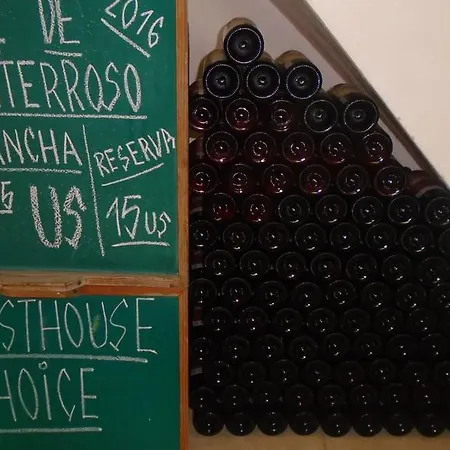 DE 2016
TERROSO
ANCHA RESERVA
5 US 15 US
STHOUSE
HOICE